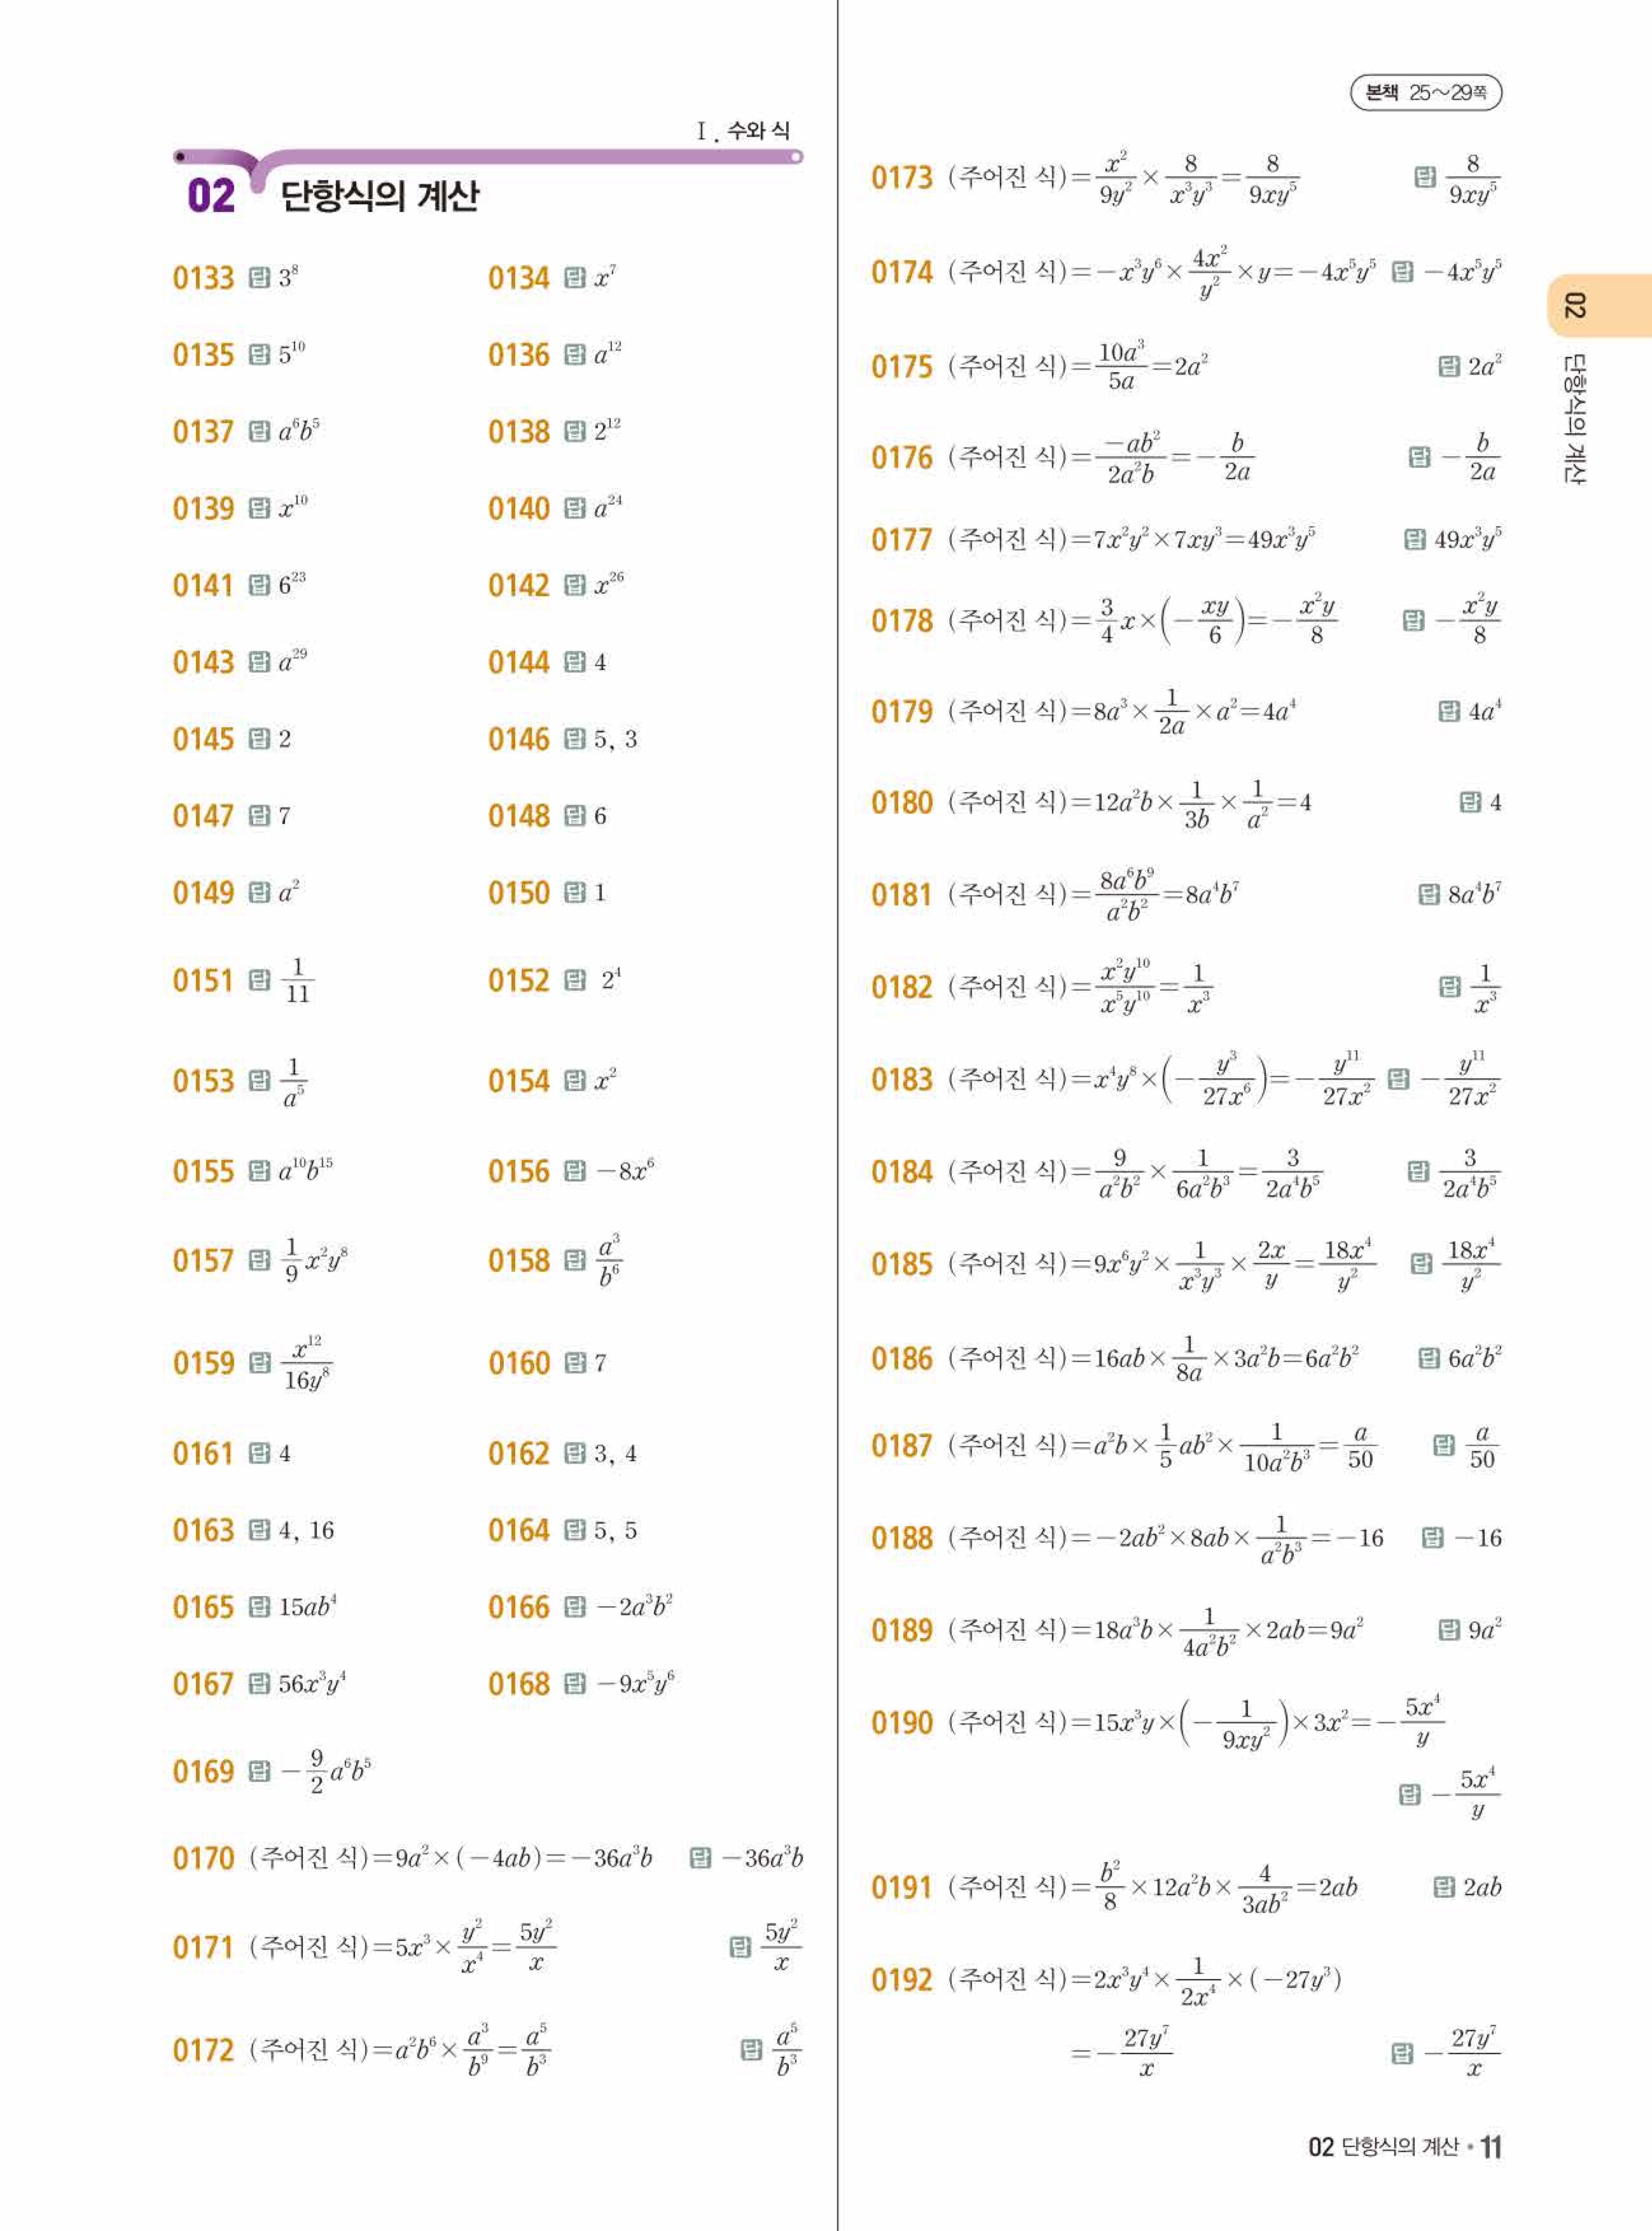 Ⅰ. 수와 식
02 단항식의 계산
0133 답 3⁸
0134 답 x⁷
0135 답 5¹⁰
0136 답 a¹²
0137 답 a⁶b⁵
0138 답 2¹²
0139 답 x¹⁰
0140 답 a²⁴
0141 답 6²³
0142 답 x²⁶
0143 답 a²⁹
0144 답 4
0145 답 2
0146 답 5, 3
0147 답 7
0148 답 6
0149 답 a²
0150 답 1
0151 답 1/11
0152 답 2⁴
0153 답 1/a⁵
0154 답 x²
0155 답 a¹⁰b¹⁵
0156 답 −8x⁶
0157 답 1/9 x²y⁸
0158 답 a³/b⁶
0159 답 x¹²/16y⁸
0160 답 7
0161 답 4
0162 답 3, 4
0163 답 4, 16
0164 답 5, 5
0165 답 15ab⁴
0166 답 −2a³b²
0167 답 56x³y⁴
0168 답 −9x⁵y⁶
0169 답 −9/2 a⁶b⁵
0170 (주어진 식)=9a²×(−4ab)=−36a³b 답 −36a³b
0171 (주어진 식)=5x³×y²/x⁴=5y²/x 답 5y²/x
0172 (주어진 식)=a²b⁶×a³/b⁹=a⁵/b³ 답 a⁵/b³
본책 25~29쪽
0173 (주어진 식)=x²/9y²×8/x³y³=8/9xy⁵ 답 8/9xy⁵
0174 (주어진 식)=−x³y⁶×4x²/y²×y=−4x⁵y⁵ 답 −4x⁵y⁵
0175 (주어진 식)=10a³/5a=2a² 답 2a²
0176 (주어진 식)=−ab²/2a²b=−b/2a 답 −b/2a
0177 (주어진 식)=7x²y²×7xy³=49x³y⁵ 답 49x³y⁵
0178 (주어진 식)=3/4 x×(−xy/6)=−x²y/8 답 −x²y/8
0179 (주어진 식)=8a³×1/2a×a²=4a⁴ 답 4a⁴
0180 (주어진 식)=12a²b×1/3b×1/a²=4 답 4
0181 (주어진 식)=8a⁶b⁹/a²b²=8a⁴b⁷ 답 8a⁴b⁷
0182 (주어진 식)=x²y¹⁰/x⁵y¹⁰=1/x³ 답 1/x³
0183 (주어진 식)=x⁴y⁸×(−y³/27x⁶)=−y¹¹/27x² 답 −y¹¹/27x²
0184 (주어진 식)=9/a²b²×1/6a²b³=3/2a⁴b⁵ 답 3/2a⁴b⁵
0185 (주어진 식)=9x⁶y²×1/x³y³×2x/y=18x⁴/y² 답 18x⁴/y²
0186 (주어진 식)=16ab×1/8a×3a²b=6a²b² 답 6a²b²
0187 (주어진 식)=a²b×1/5 ab²×1/10a²b³=a/50 답 a/50
0188 (주어진 식)=−2ab²×8ab×1/a²b³=−16 답 −16
0189 (주어진 식)=18a³b×1/4a²b²×2ab=9a² 답 9a²
0190 (주어진 식)=15x³y×(−1/9xy²)×3x²=−5x⁴/y
답 −5x⁴/y
0191 (주어진 식)=b²/8×12a²b×4/3ab²=2ab 답 2ab
0192 (주어진 식)=2x³y⁴×1/2x⁴×(−27y³)
=−27y⁷/x 답 −27y⁷/x
02 단항식의 계산
02 단항식의 계산 • 11